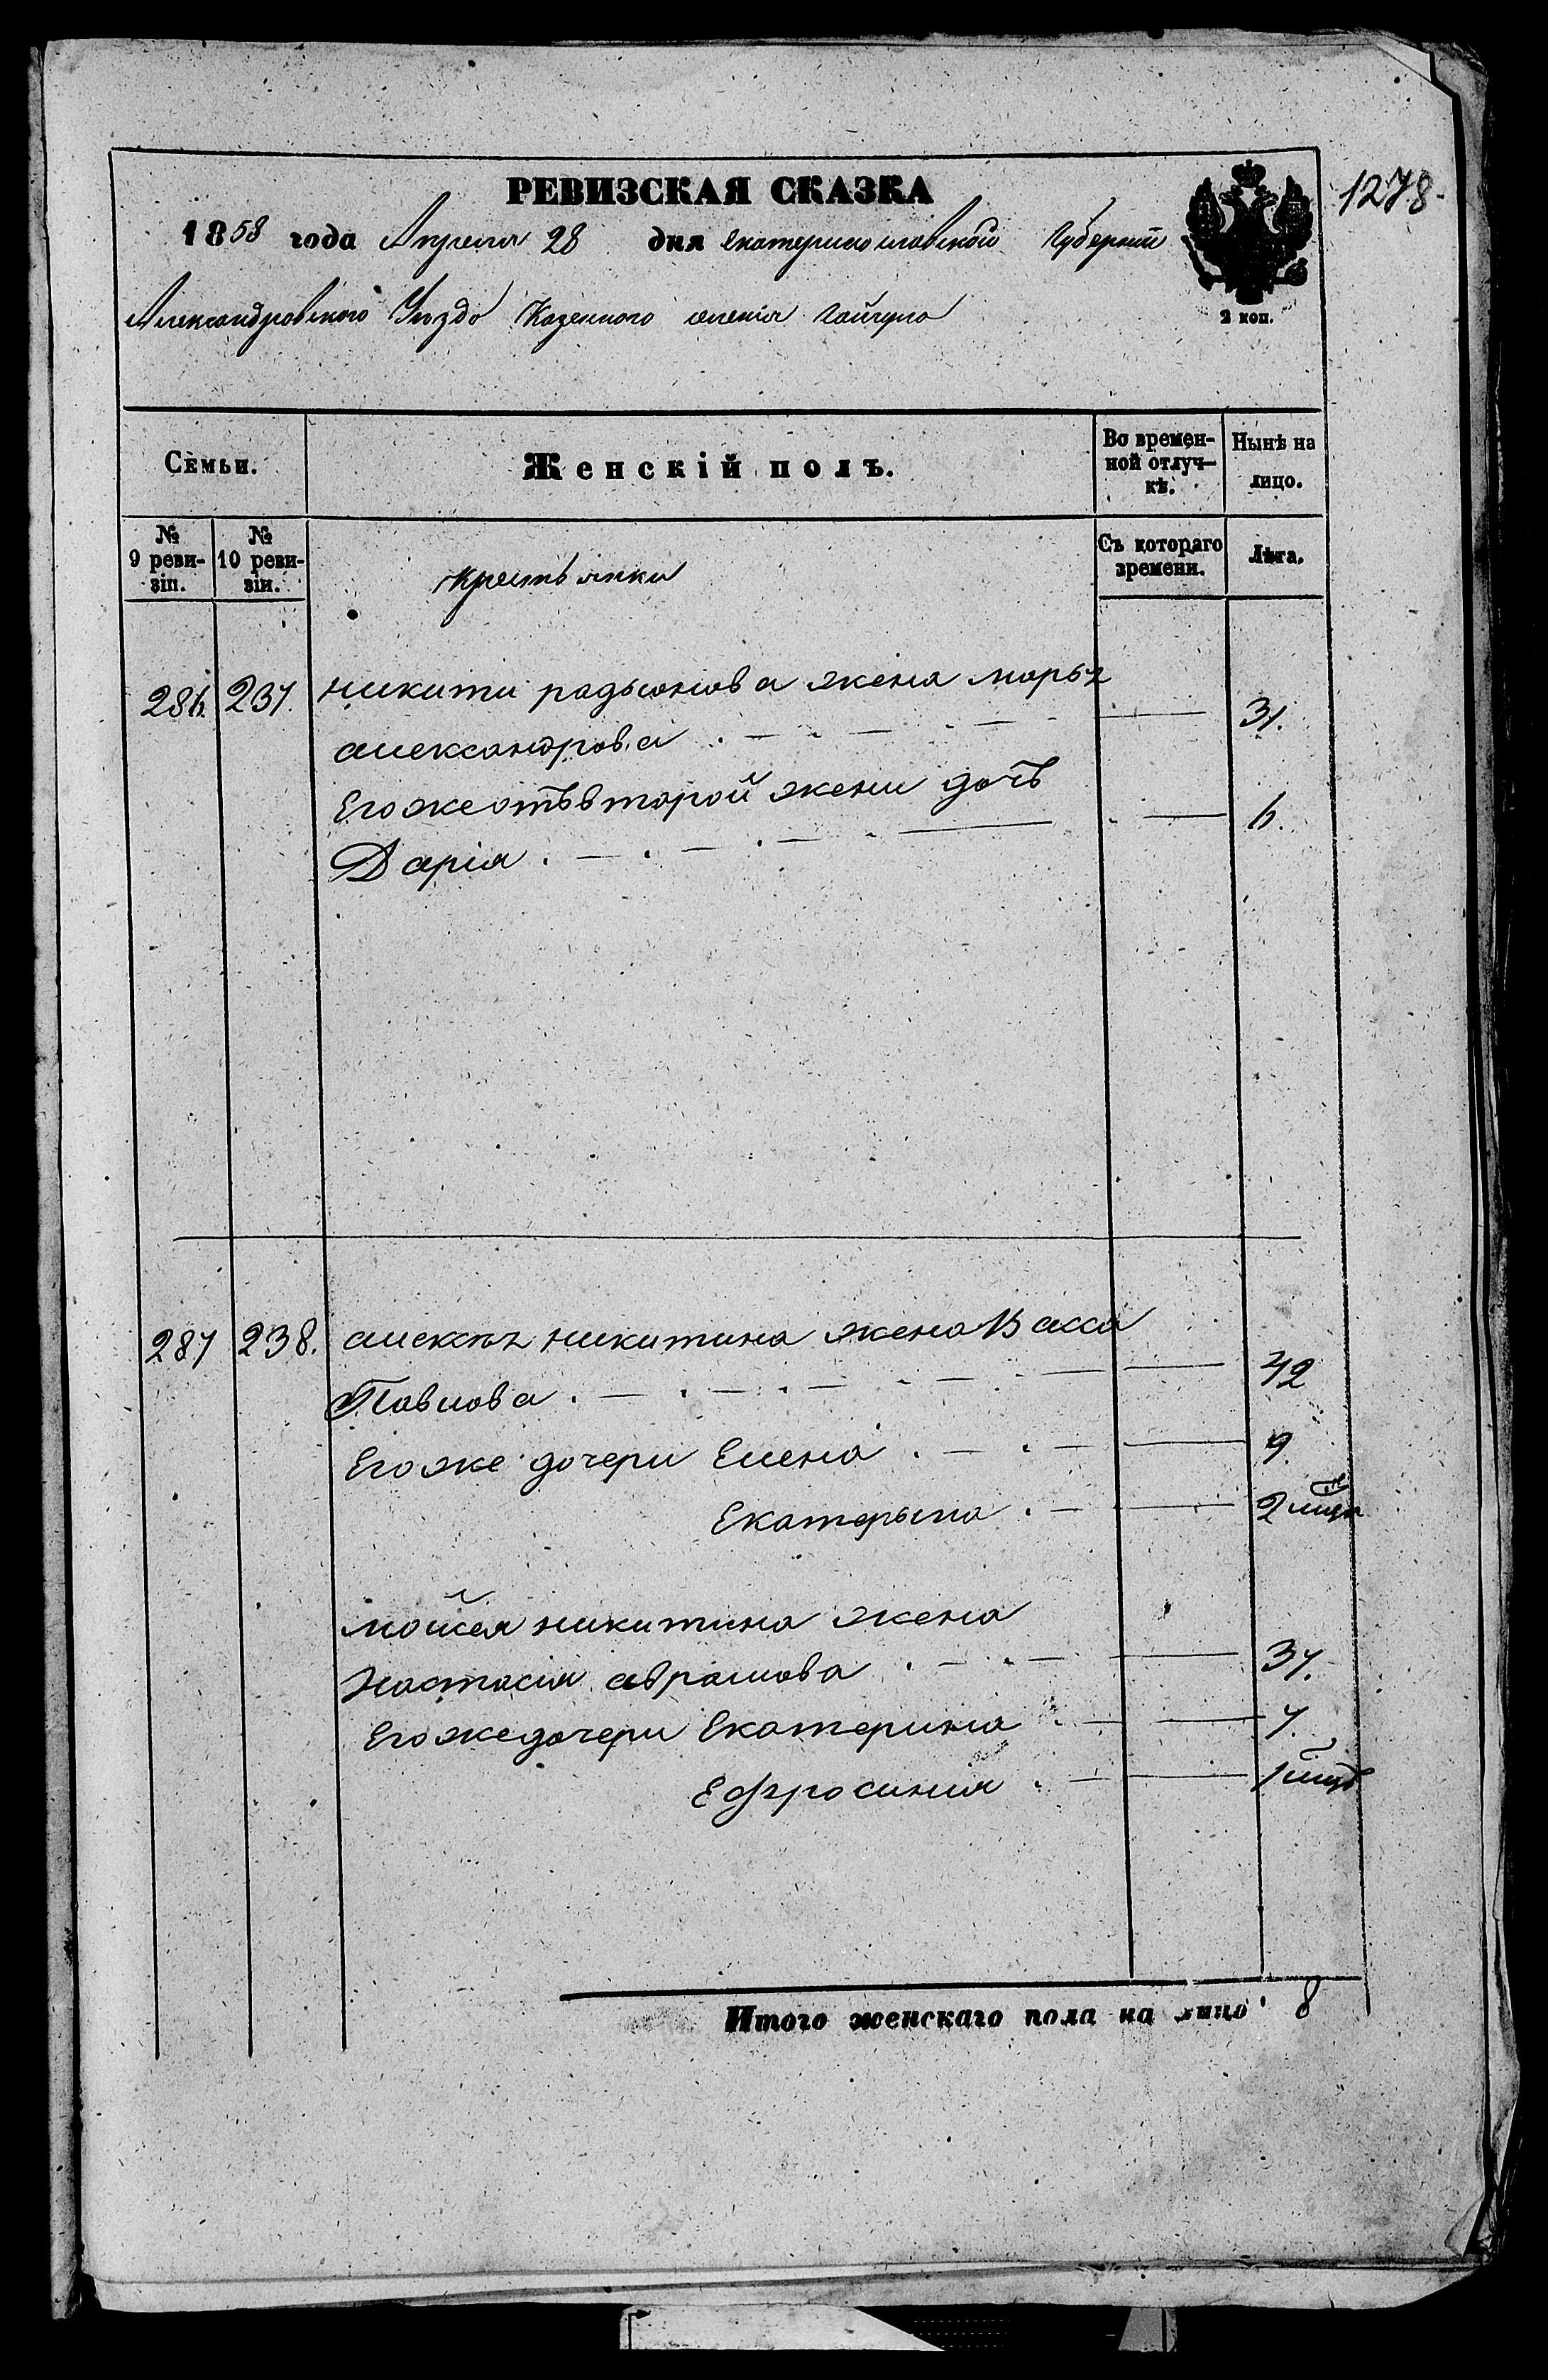 1278.
РЕВИЗСКАЯ СКАЗКА
1858 года Апреля 28 дня Екатеринославской Губернии
Александровского Уезда Казенного селения Гайчула
2 коп.
Семьи.
Женскій полъ.
Во времен-
ной отлуч-
кѣ.
Нынѣ на
лицо.
№
9 реви-
зіи.
№
10 реви-
зіи.
крестьянки
Съ котораго
времени.
Лѣта.
286. 237. никити радыонова жена марья
александрова 37.
Его же отъ второй жени дочъ
Дарія 6.
287 238. алексея никитина жена Васса
Павлова 42
Его же дочери Елена 9.
Екатерына
мойсея никитина жена
Настасія аврамова 37.
Его же дочери Екатерина 7.
Ефросинія
Итого женскаго пола на лицо 8